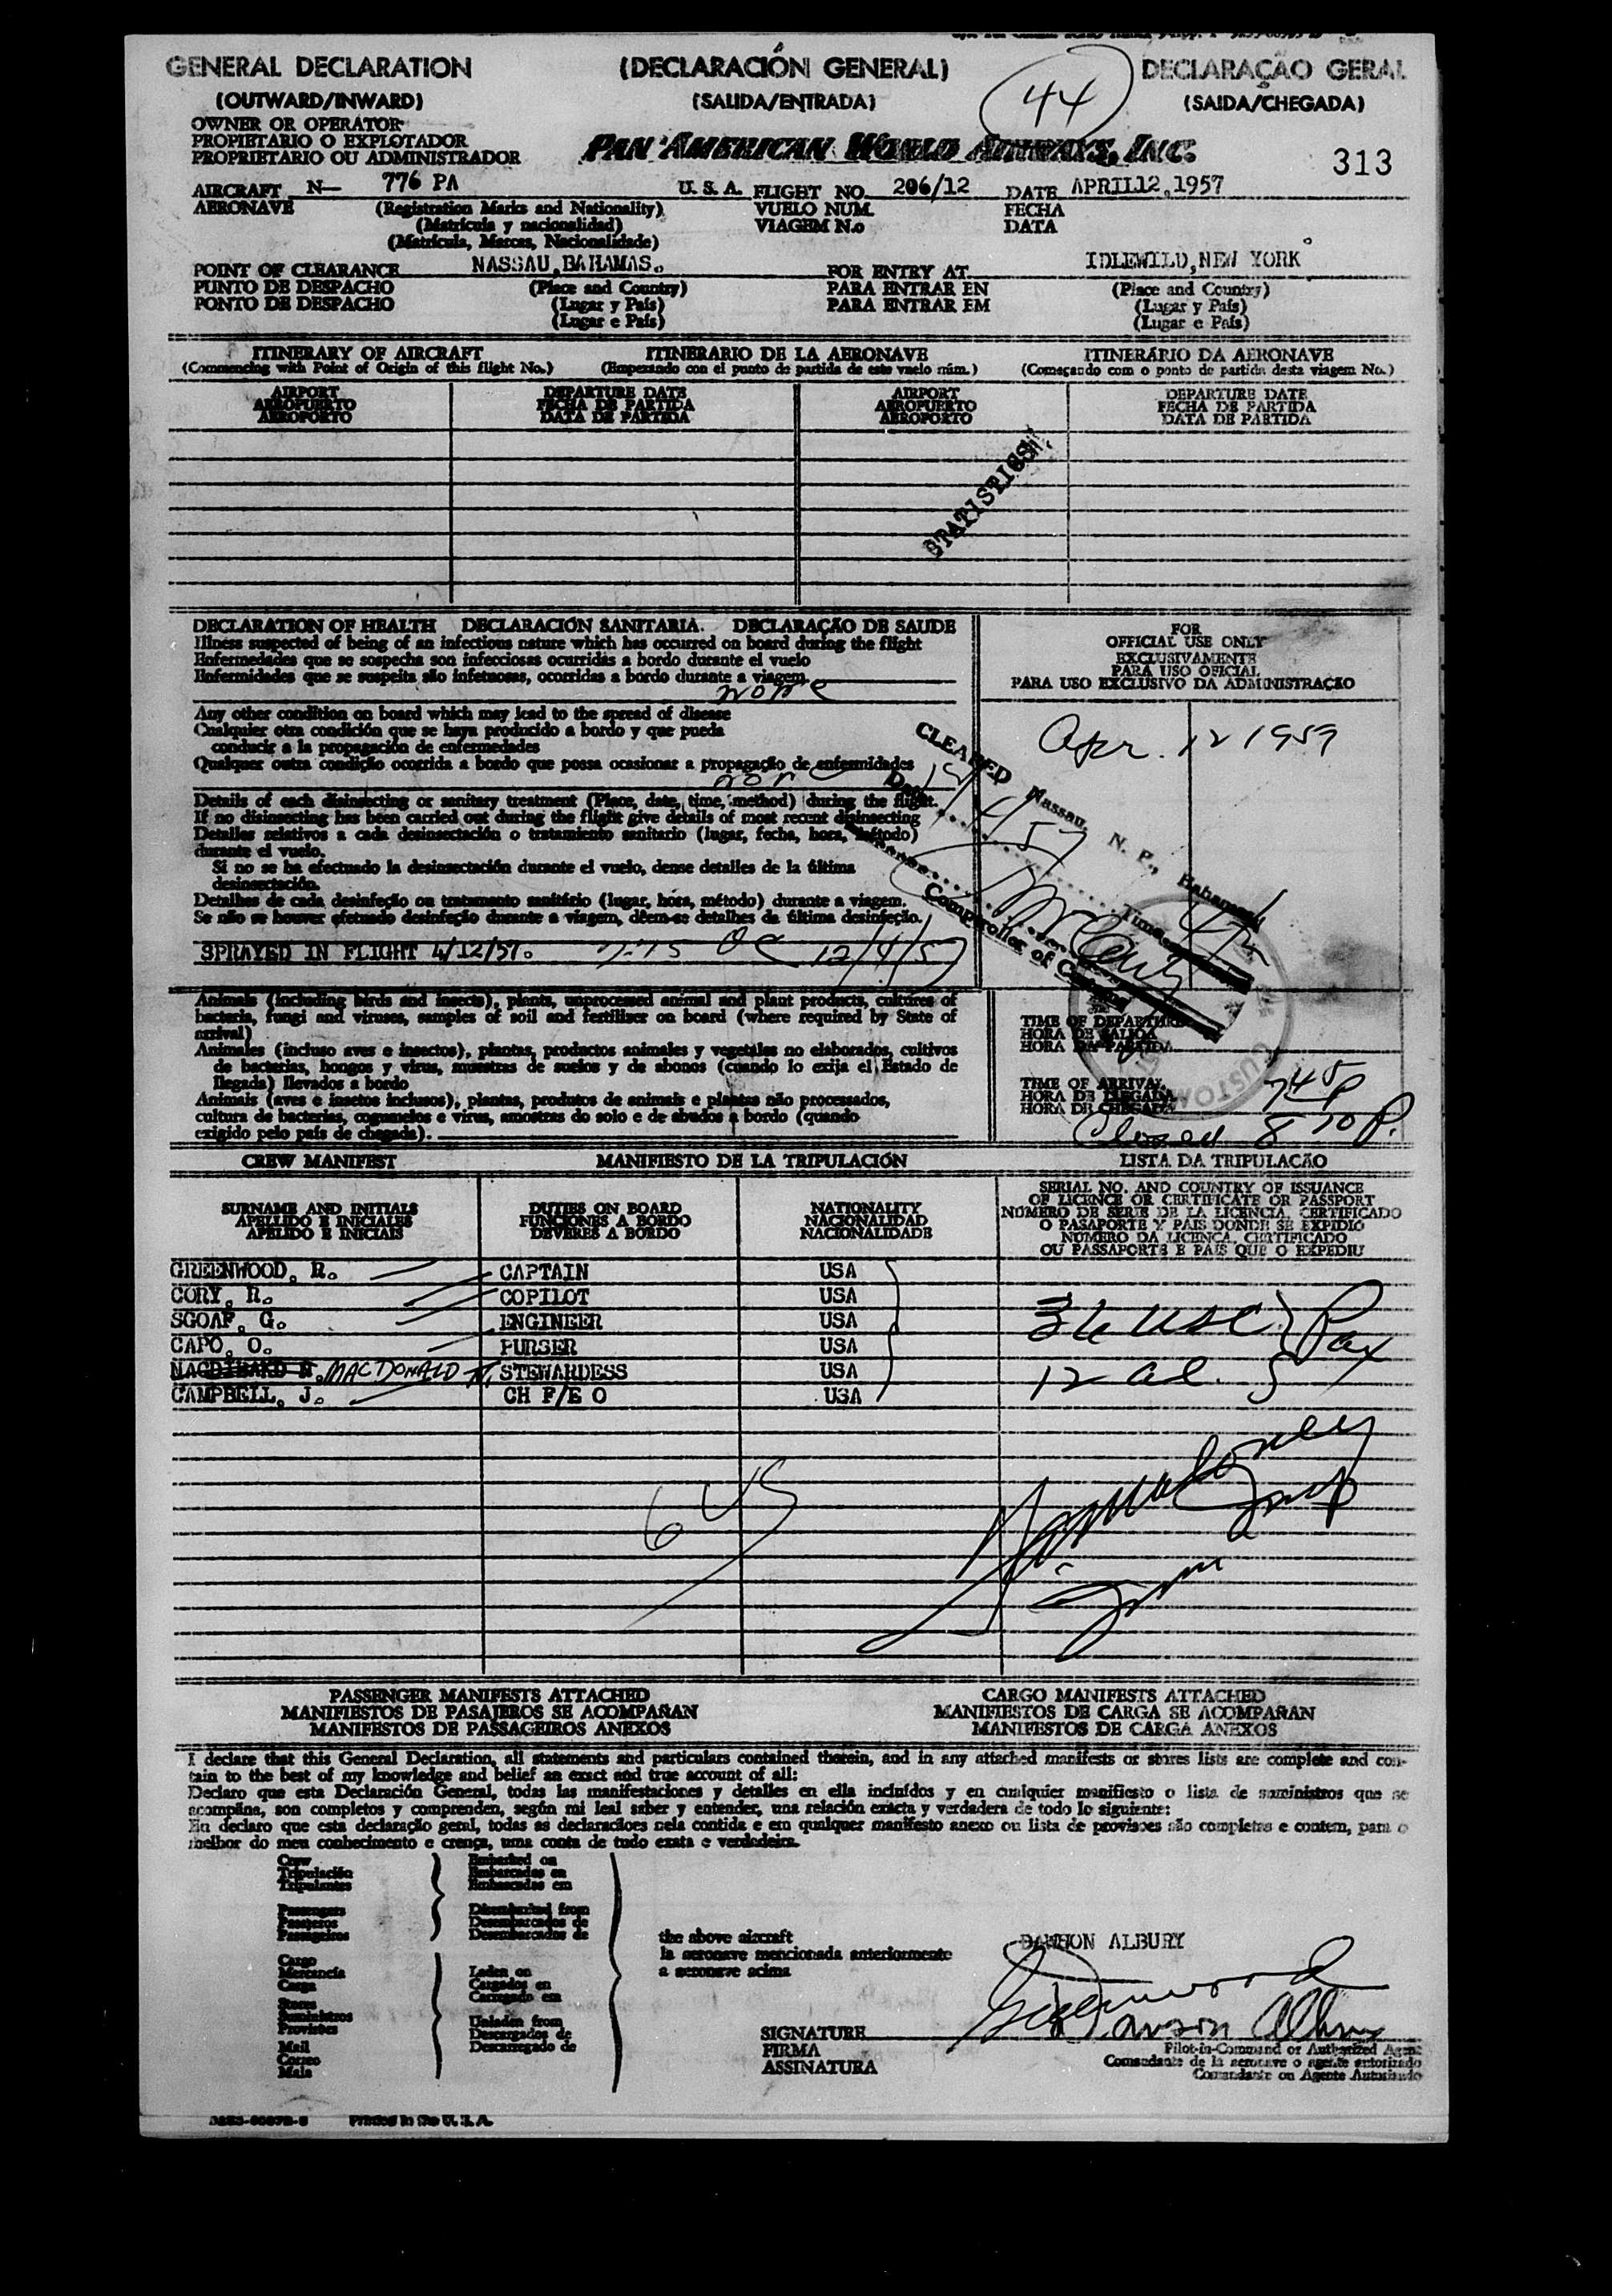 GENERAL DECLARATION (DECLARACIÓN GENERAL) DECLARAÇÃO GERAL
(OUTWARD/INWARD) (SALIDA/ENTRADA) 44 (SAIDA/CHEGADA)
OWNER OR OPERATOR
PROPIETARIO O EXPLOTADOR
PROPRIETARIO OU ADMINISTRADOR
PAN AMERICAN WORLD AIRWAYS, INC. 313
AIRCRAFT N— 776 PA U. S. A. FLIGHT NO. 206/12 DATE APRIL12,1957
AERONAVE (Registration Marks and Nationality) VUELO NUM. FECHA
(Matrícula y nacionalidad) VIAGEM N.o DATA
(Matrícula, Marcas, Nacionalidade)
POINT OF CLEARANCE NASSAU,BAHAMAS. FOR ENTRY AT IDLEWILD,NEW YORK
PUNTO DE DESPACHO (Place and Country) PARA ENTRAR EN (Place and Country)
PONTO DE DESPACHO (Lugar y País) PARA ENTRAR EM (Lugar y País)
(Lugar e País) (Lugar e País)
ITINERARY OF AIRCRAFT ITINERARIO DE LA AERONAVE ITINERÁRIO DA AERONAVE
(Commencing with Point of Origin of this flight No.) (Empezando con el punto de partida de este vuelo núm.) (Começando com o ponto de partida desta viagem No.)
AIRPORT DEPARTURE DATE AIRPORT DEPARTURE DATE
AEROPUERTO FECHA DE PARTIDA AEROPUERTO FECHA DE PARTIDA
AEROPORTO DATA DE PARTIDA AEROPORTO DATA DE PARTIDA
STATISTICS
DECLARATION OF HEALTH DECLARACIÓN SANITARIA. DECLARAÇÃO DE SAUDE
Illness suspected of being of an infectious nature which has occurred on board during the flight
Enfermedades que se sospecha son infecciosas ocurridas a bordo durante el vuelo
Enfermidades que se suspeita são infetuosas, ocorridas a bordo durante a viagem.
none
Any other condition on board which may lead to the spread of disease
Cualquier otra condición que se haya producido a bordo y que pueda
conducir a la propagación de enfermedades
Qualquer outra condição ocorrida a bordo que possa ocasionar a propagação de enfermidades
none
Details of each disinsecting or sanitary treatment (Place, date, time, method) during the flight.
If no disinsecting has been carried out during the flight give details of most recent disinsecting
Detalles relativos a cada desinsectación o tratamiento sanitario (lugar, fecha, hora, método)
durante el vuelo.
Si no se ha efectuado la desinsectación durante el vuelo, dense detalles de la última
desinsectación.
Detalhes de cada desinfeção ou tratamento sanitário (lugar, hora, método) durante a viagem.
Se não se houver efetuado desinfeção durante a viagem, dêem-se detalhes da última desinfeção.
SPRAYED IN FLIGHT 4/12/57. 12/4/57
FOR
OFFICIAL USE ONLY
EXCLUSIVAMENTE
PARA USO OFICIAL
PARA USO EXCLUSIVO DA ADMINISTRAÇÃO
Apr. 12 1957
CLEARED
Nassau, N. P., Bahamas
Date 12/4/57
Time
Comptroller of Customs
CUSTOMS
Animals (including birds and insects), plants, unprocessed animal and plant products, cultures of
bacteria, fungi and viruses, samples of soil and fertiliser on board (where required by State of
arrival)
Animales (incluso aves e insectos), plantas, productos animales y vegetales no elaborados, cultivos
de bacterias, hongos y virus, muestras de suelos y de abonos (cuando lo exija el Estado de
llegada) llevados a bordo
Animais (aves e insetos inclusos), plantas, produtos de animais e plantas não processados,
cultura de bacterias, cogumelos e virus, amostras do solo e de abudos a bordo (quando
exigido pelo país de chegada).
TIME OF DEPARTURE
HORA DE SALIDA
HORA DA PARTIDA
TIME OF ARRIVAL
HORA DE LLEGADA 7 45 P
HORA DE CHEGADA
Closed 8 20 P.
CREW MANIFEST MANIFIESTO DE LA TRIPULACIÓN LISTA DA TRIPULAÇÃO
SURNAME AND INITIALS DUTIES ON BOARD NATIONALITY
APELLIDO E INICIALES FUNCIONES A BORDO NACIONALIDAD
APELIDO E INICIAIS DEVERES A BORDO NACIONALIDADE
SERIAL NO. AND COUNTRY OF ISSUANCE
OF LICENCE OR CERTIFICATE OR PASSPORT
NUMERO DE SERIE DE LA LICENCIA, CERTIFICADO
O PASAPORTE Y PAIS DONDE SE EXPIDIÓ
NÚMERO DA LICENCA, CERTIFICADO
OU PASSAPORTE E PAIS QUE O EXPEDIU
GREENWOOD, R. CAPTAIN USA
CORY, R. COPILOT USA
SGOAF, G. ENGINEER USA
CAPO, O. PURSER USA
MACDONALD STEWARDESS USA
CAMPBELL, J. CH F/E O USA
36 USC } Pax
12 al.
6 US
PASSENGER MANIFESTS ATTACHED CARGO MANIFESTS ATTACHED
MANIFIESTOS DE PASAJEROS SE ACOMPAÑAN MANIFIESTOS DE CARGA SE ACOMPAÑAN
MANIFESTOS DE PASSAGEIROS ANEXOS MANIFESTOS DE CARGA ANEXOS
I declare that this General Declaration, all statements and particulars contained therein, and in any attached manifests or stores lists are complete and con-
tain to the best of my knowledge and belief an exact and true account of all:
Declaro que esta Declaración General, todas las manifestaciones y detalles en ella incluídos y en cualquier manifiesto o lista de suministros que se
acompãna, son completos y comprenden, según mi leal saber y entender, una relación exacta y verdadera de todo lo siguiente:
Eu declaro que esta declaração geral, todas as declaracões nela contida e em qualquer manifesto anexo ou lista de provisoes são completas e contem, para o
melhor do meu conhecimento e crença, uma conta de tudo exata e verdadeira.
Crew Embarked on
Tripulación Embarcados en
Tripulantes Embarcados em
Passengers Disembarked from
Pasajeros Desembarcados de
Passageiros Desembarcados de
the above aircraft
la aeronave mencionada anteriormente
a aeronave acima
Cargo
Mercancía Laden on
Carga Cargados en
Carregado em
Stores
Suministros
Provisões Unladen from
Descargados de
Mail Descarregado de
Correo
Mala
DAWSON ALBURY
Greenwood
Dawson Albury
SIGNATURE
FIRMA
ASSINATURA
Pilot-in-Command or Authorized Agent
Comandante de la aeronave o agente autorizado
Comandante ou Agente Autorizado
Printed in the U. S. A.